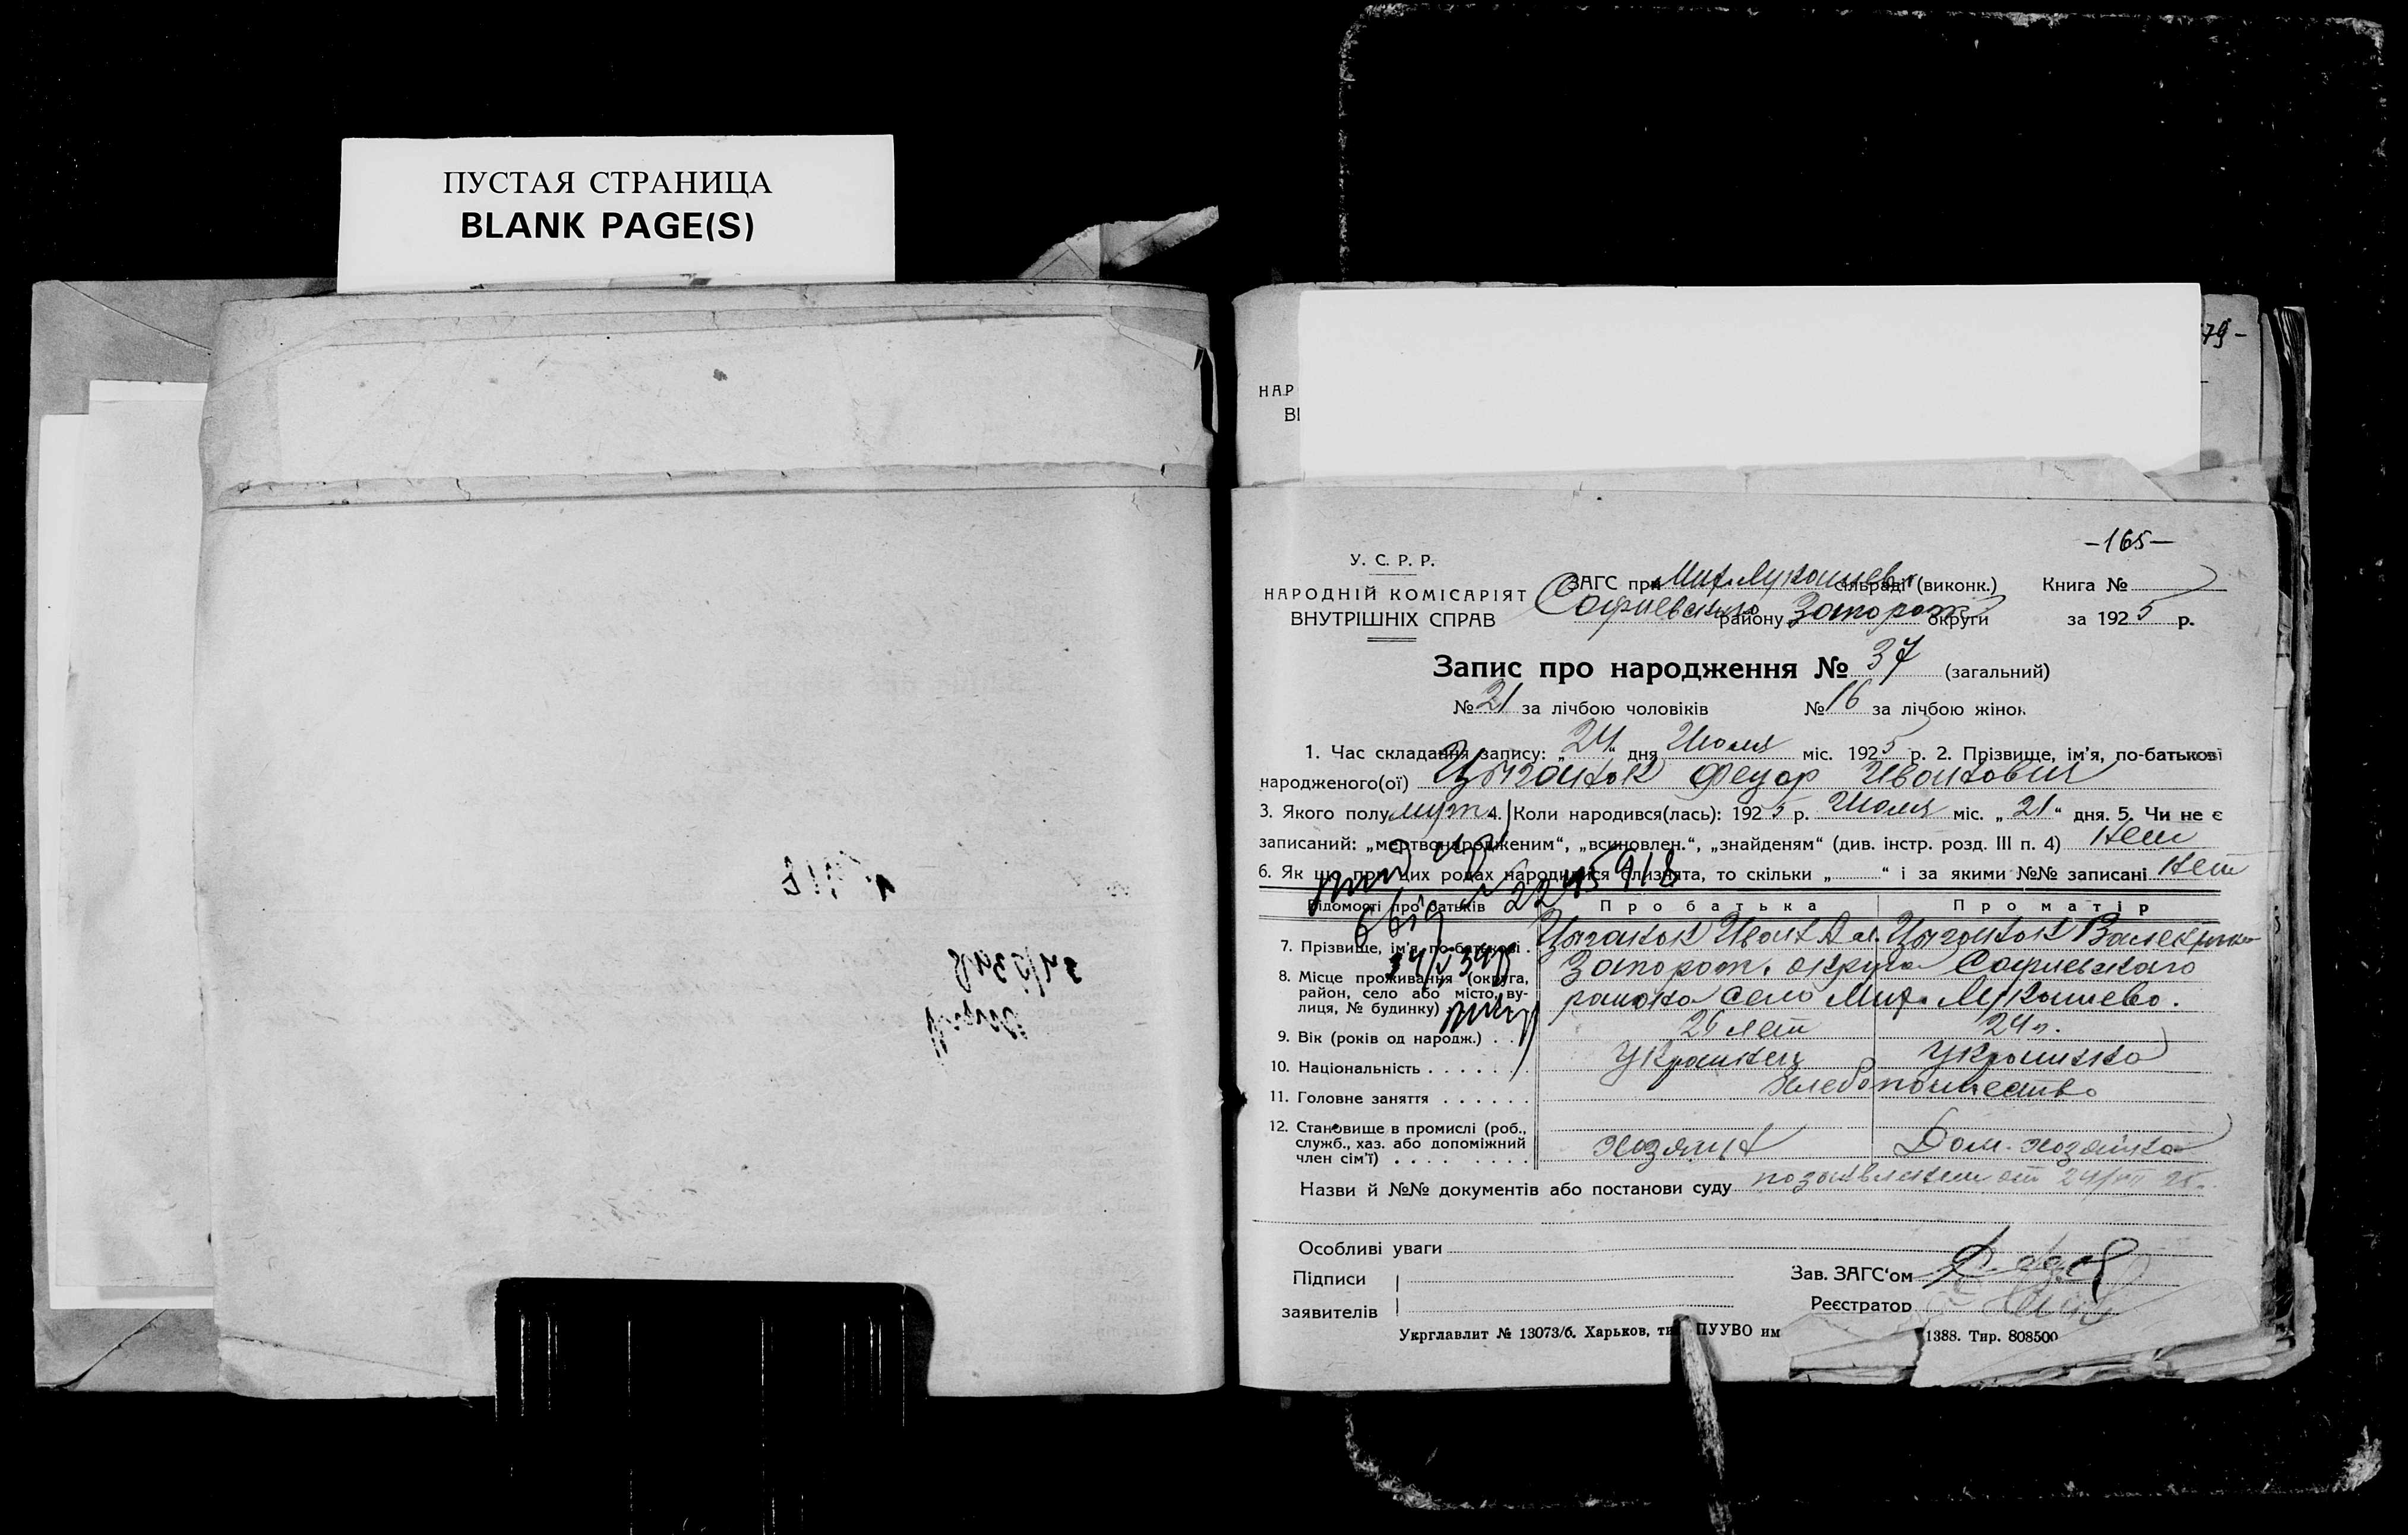 ПУСТАЯ СТРАНИЦА
BLANK PAGE(S)
79-
НАР
ВІ
-165-
У. С. Р. Р.
НАРОДНІЙ КОМІСАРІЯТ
ВНУТРІШНІХ СПРАВ
ЗАГС при Мих. Лукашев сільраді (виконк.) Книга №
Софиевского району Запорож округи за 1925 р.
Запис про народження № 37 (загальний)
№ 21 за лічбою чоловіків № 16 за лічбою жінок
1. Час складання запису: „24“ дня Июля міс. 1925 р. 2. Прізвище, ім'я, по-батькові
народженого(ої) Цыганок Федор Иванович
3. Якого полу муж. 4. Коли народився(лась): 1925 р. Июля міс. „21“ дня. 5. Чи не є
записаний: „мертвонародженим“, „всиновлен.“, „знайденям“ (див. інстр. розд. III п. 4) Нет
6. Як що при цих родах народилися близнята, то скільки „ “ і за якими №№ записані Нет
Відомості про батьків Про батька Про матір
7. Прізвище, ім'я, по-батькові . Цыганок Иван Цыганок
8. Місце проживання (округа, район, село або місто, вулиця, № будинку) Запорож. округа Софиевского
района село Мих. Лукашево.
9. Вік (років од народж.) . . 26 лет 24 л.
10. Національність . . . . . . Украинец Украинка
11. Головне заняття . . . . . . Хлебопашество
12. Становище в промислі (роб.,
служб., хаз. або допоміжний
член сім'ї) . . . . . . . . Хозяин Дом. хозяйка
Назви й №№ документів або постанови суду по заявлению от 24/VII 25
Особливі уваги
Підписи
заявителів
Зав. ЗАГС'ом
Реєстратор
Укрглавлит № 13073/б. Харьков, ти ПУУВО им 1388. Тир. 808500